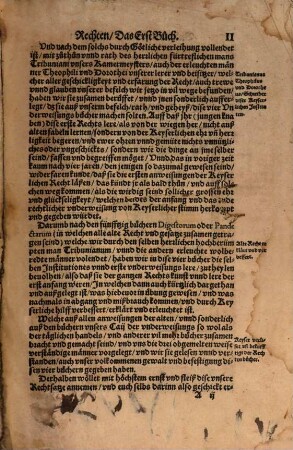 Rechten / Das Erst Bůch. II
Vnd nach dem solchs durch Götliche verleihung vollendet
ist / mit zůthůn vnnd rath des herrlichen fürtreflichen mans
Triboniani vnsers Kamermeysters / auch der erleuchten män
ner Theophili vnd Dorothei vnserer lerer vnd beisitzer / welcher
aller geschicklicheyt vnd erfarung der Recht / auch trewe
vnd glauben vnserer befelch wir jetzo in vil wege befunden /
haben wir sie zusamen berůfft / vnnd jnen sonderlich auffer
legt / dz sie auß vnserm befelch / rath / vnd geheyß / dise Vnderweisunge
bücher machen solten. Auff daß jhr jungen kündten /
dise erste Rechts lere / als von der wiegen her / nicht auß
alten fabeln lernen / sonder von der Keyserlichen
vnd ewer ohren vnd gemůte nichts
oder vngeschickts / sonder wie die ding an jne selber
seind / fassen vnd begreiffen möget / Vnd das in voriger zeit
kaum nach vier jaren / den jenigen so dazumal gewesen seind /
widerfaren ist / daß sie erst als dann die anweisungen der Keyserlichen
Recht läsen / das findt jr als bald
wegkommen / als die wirdig seind sollicher grosser ehr
vnd glückseligkeyt / welchen beydes der anfang vnd das ende
der underweisung von Keyserlicher stimm herkompt
vnd gegeben würdet.
Darumb nach den fünfftzig büchern Digestorum oder Pandectarum
( in welchen alle alte Recht vnd gesatz zusamen getragen
seind ) welche wir durch den selben herrlichen hochberümpten
man Tribunianum / vnnd die andern erleuchte wolberedte
männer volendet / haben wir in dise vier bücher die selben
Institutiones vnnd erste vnderweisungs lere / zutheylen
beuolhen / also daß sie der gantzen Rechts kunst vnnd lere der
erst anfang weren / In welchen dann auch kürtzlich dargethan
vnd außgelegt ist / was hiebeuorn in übung gewesen / vnd was
nachmals in abgang vnd mißbrauch kommen / vnd durch Keyserliche
hilff verbessert / erklärt vnd erleuchtet ist.
Welche auß allen anweisungen der alten / vnnd sonderlich
auß den büchern vnsers Caij der vnderweisungs so wol als
der täglichen handels / vnd anderer vil mehr bücher zusamen
bracht vnd gemacht seind / vnd vns die drei obgemelten weise
verständige männer vorgelegt / wir sie gelesen vnnd verstanden /
auch vnser volkommenen gewalt vnd befestigung disen
vier büchern geben haben.
Derhalben wöllet mit höchstem ernst vnd fleiß dise vnsere
Rechtsatze annemen / vnd euch selbs darinn also geschickt er
A ij
Tribonianus
Theophilus
vnd Dorotheus
Alte Recht